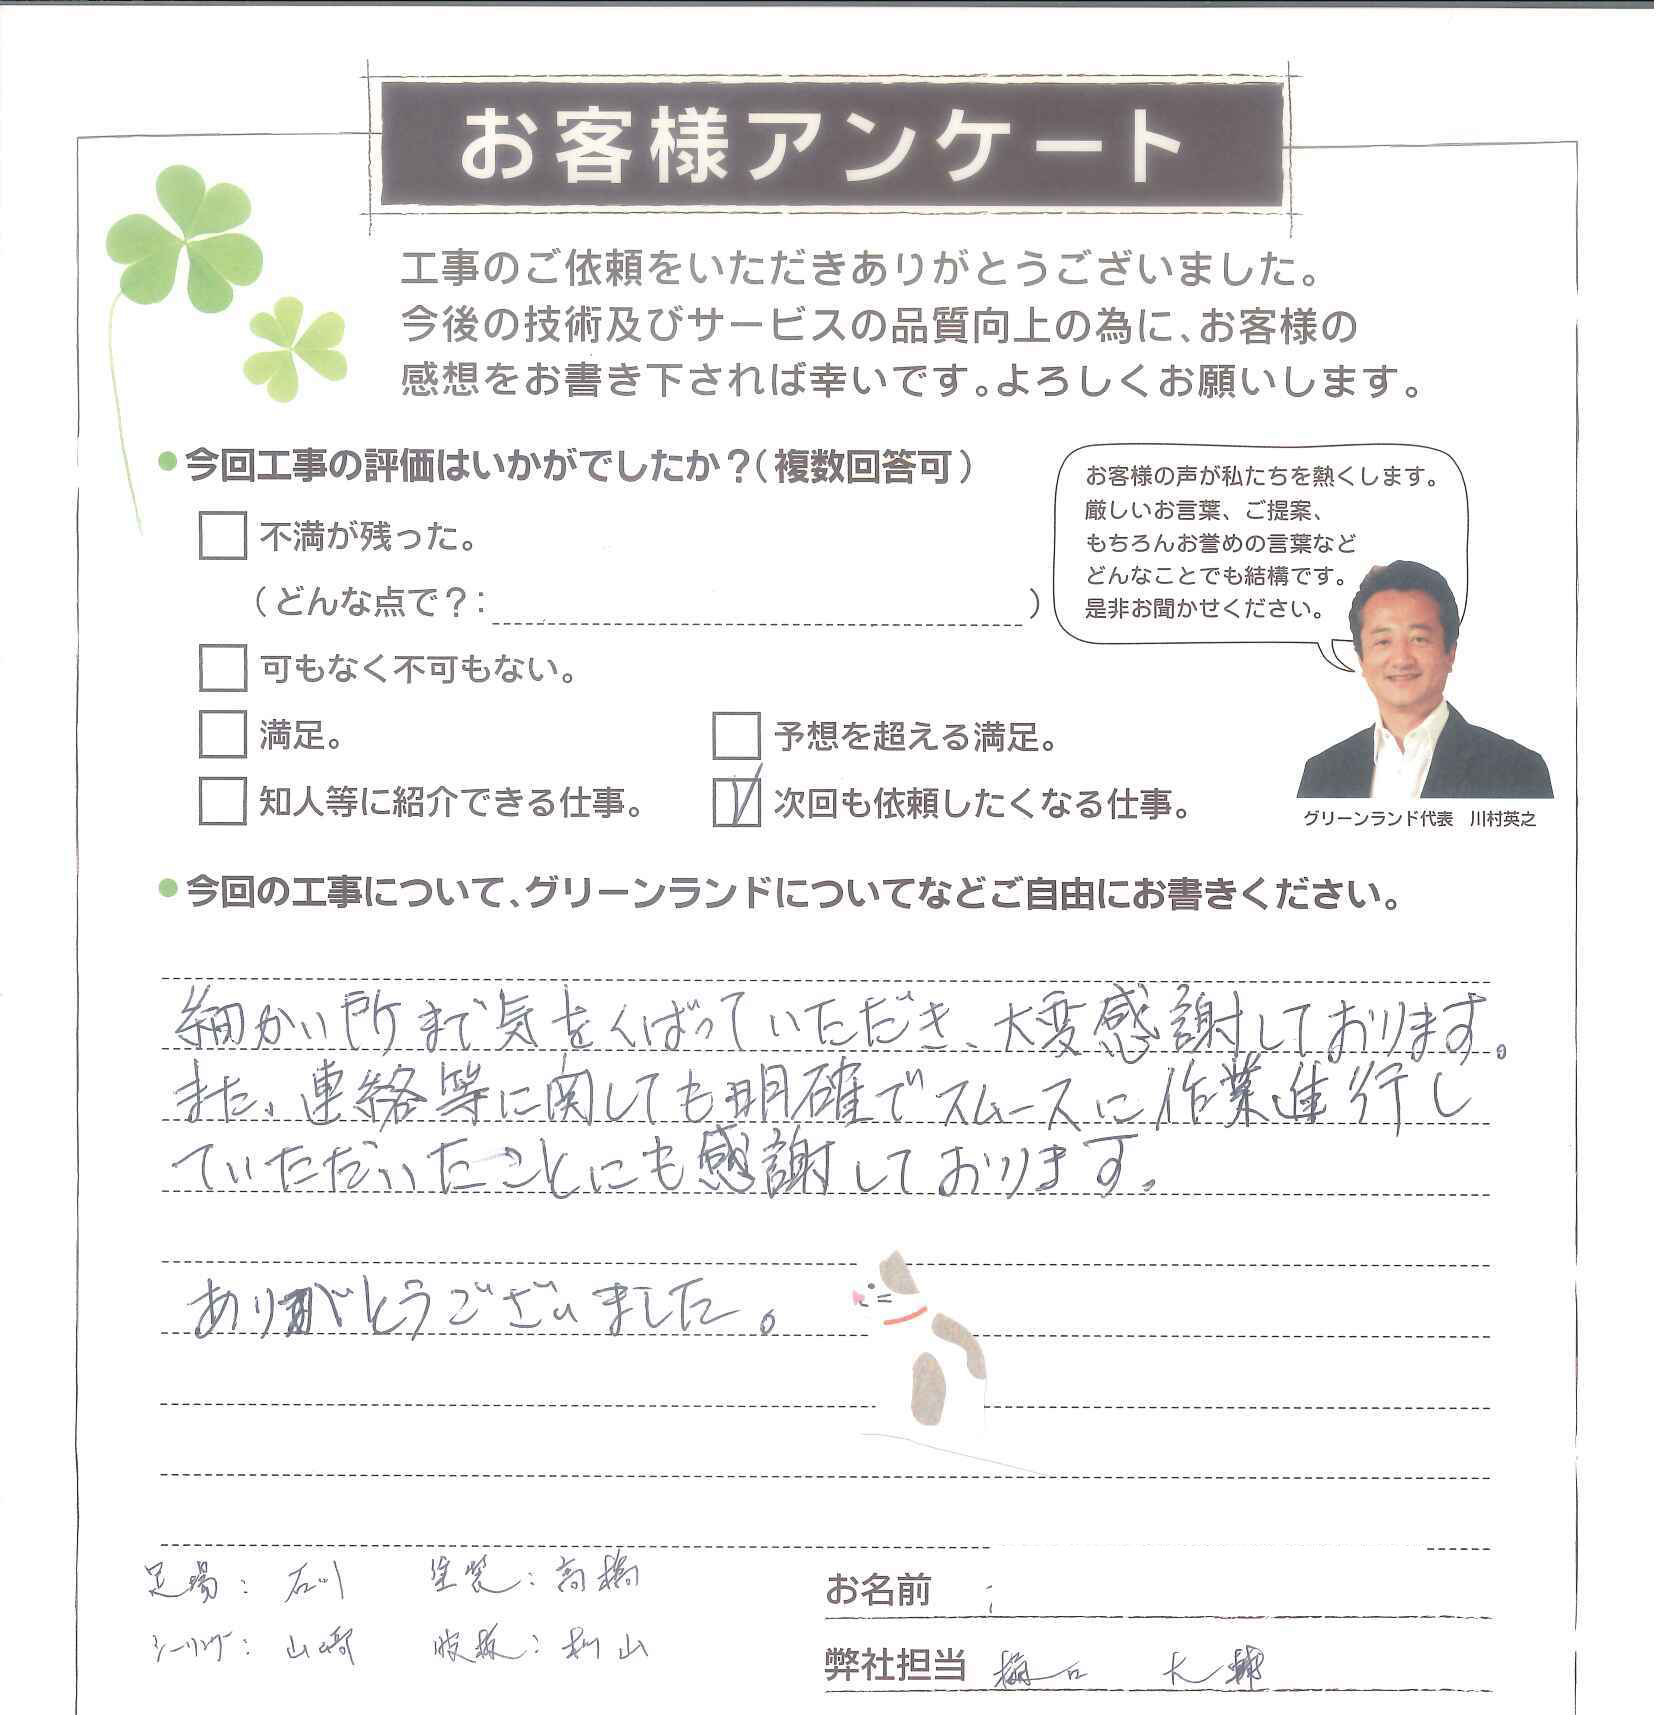 お客様アンケート
工事のご依頼をいただきありがとうございました。
今後の技術及びサービスの品質向上の為に、お客様の
感想をお書き下されば幸いです。よろしくお願いします。
今回工事の評価はいかがでしたか?(複数回答可)
不満が残った。
(どんな点で?: )
可もなく不可もない。
満足。
予想を超える満足。
知人等に紹介できる仕事。
次回も依頼したくなる仕事。
お客様の声が私たちを熱くします。
厳しいお言葉、ご提案、
もちろんお誉めの言葉など
どんなことでも結構です。
是非お聞かせください。
グリーンランド代表 川村英之
今回の工事について、グリーンランドについてなどご自由にお書きください。
細かい所まで気をくばっていただき、大変感謝しております。
また、連絡等に関しても明確でスムースに作業進行し
ていただいたことにも感謝しております。
ありがとうございました。
足場: 石川 塗装: 高橋
シーリング: 山崎
お名前
弊社担当 樋口 大輔